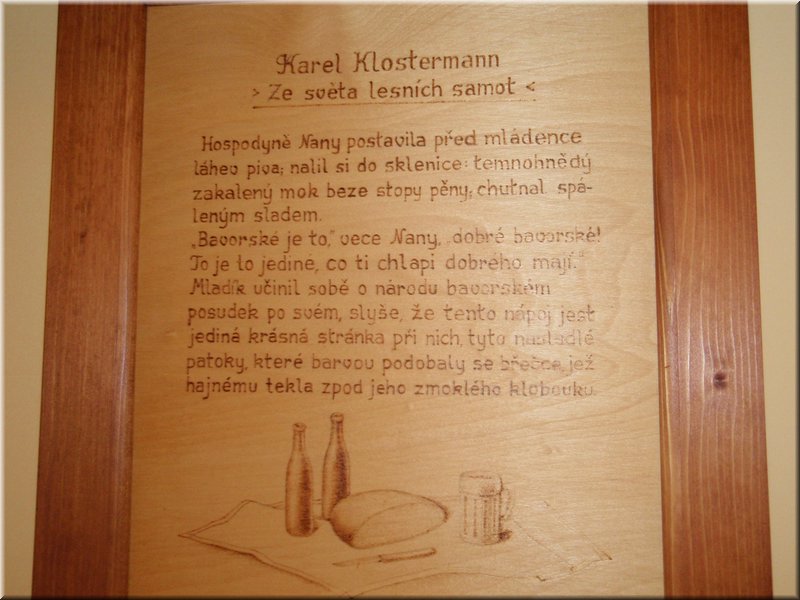 Karel Klostermann
> Ze světa lesních samot <
Hospodyně Nany postavila před mládence
láhev piva; nalil si do sklenice: temnohnědý
zakalený mok beze stopy pěny; chutnal spá-
leným sladem.
„Bavorské je to,“ vece Nany, „dobré bavorské!
To je to jediné, co ti chlapi dobrého mají.“
Mladík učinil sobě o národu bavorském
posudek po svém, slyše, že tento nápoj jest
jediná krásná stránka při nich, tyto nasládlé
patoky, které barvou podobaly se břečce, jež
hajnému tekla zpod jeho zmoklého klobouku.